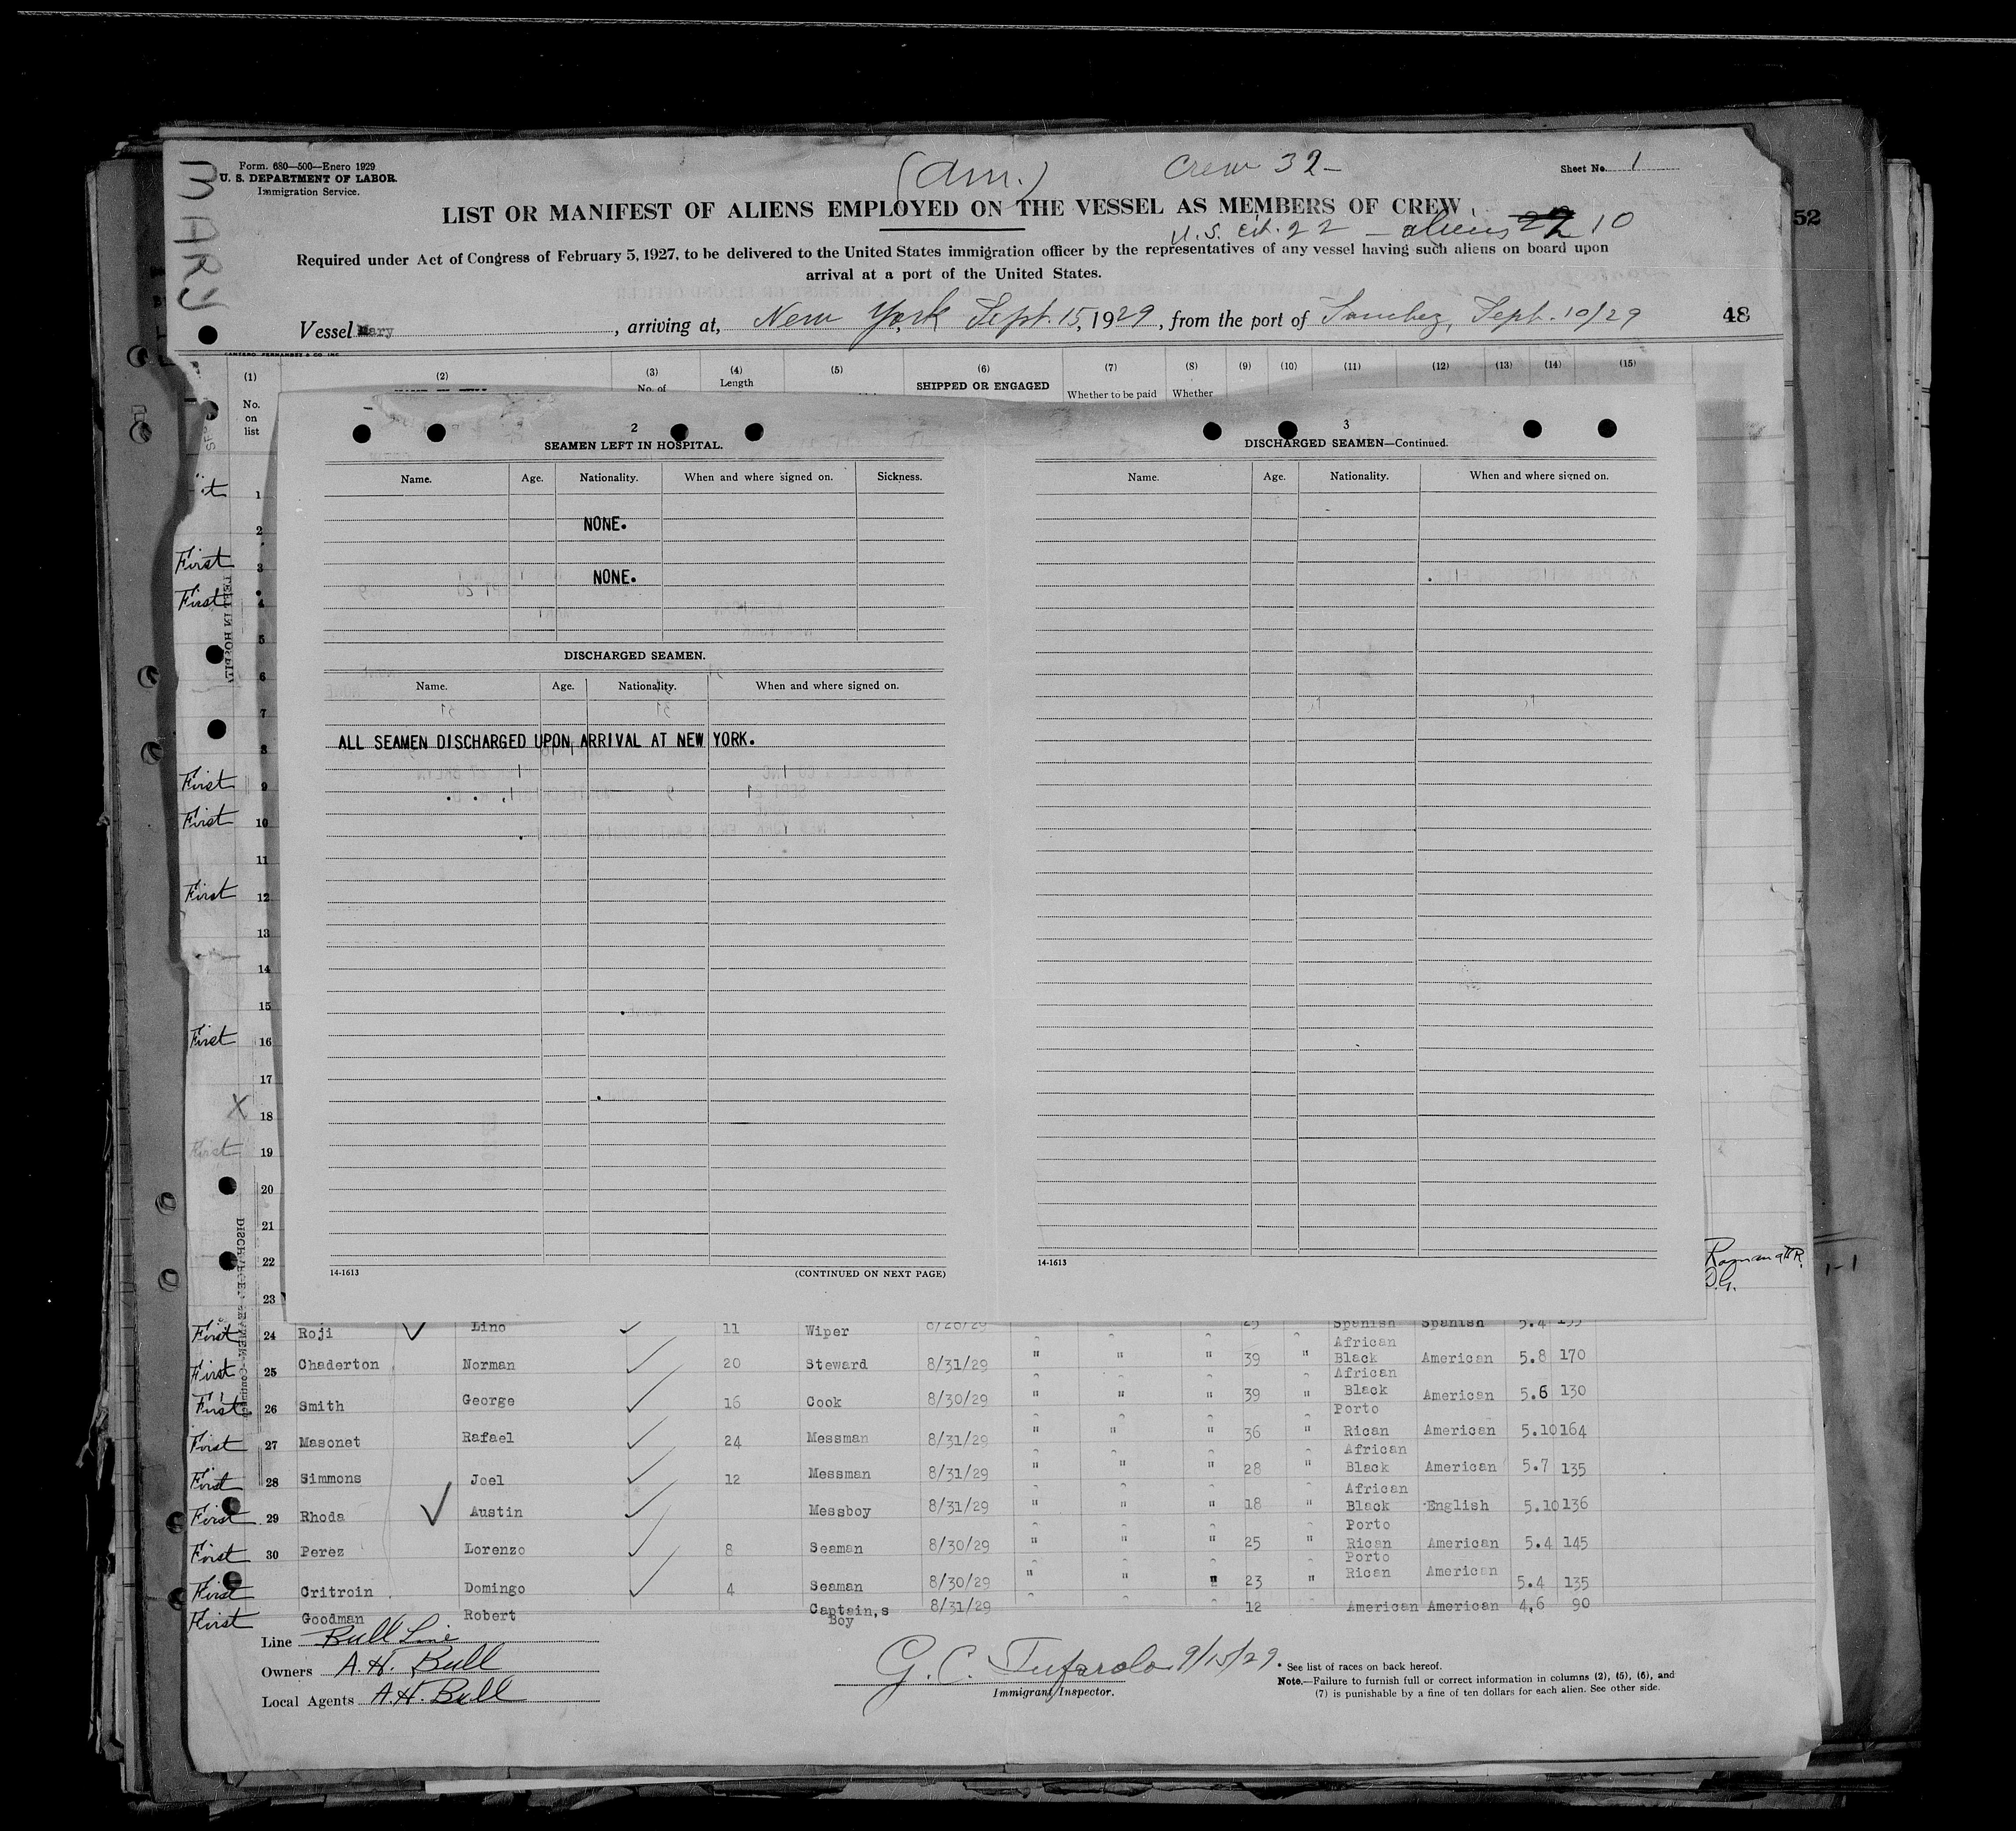 MARY
Form. 680—500—Enero 1929
U. S. DEPARTMENT OF LABOR.
Immigration Service.
(Am.)
Crew 32-
Sheet No. 1
LIST OR MANIFEST OF ALIENS EMPLOYED ON THE VESSEL AS MEMBERS OF CREW
U.S. cit. 22 - aliens 22 10
52
Required under Act of Congress of February 5, 1927, to be delivered to the United States immigration officer by the representatives of any vessel having such aliens on board upon
arrival at a port of the United States.
Vessel Mary, arriving at, New York Sept. 15, 1929, from the port of Sanchez, Sept. 10/29
48
(1) (2) (3) (4) (5) (6) (7) (8) (9) (10) (11) (12) (13) (14) (15)
No. on list
No. of
Length
SHIPPED OR ENGAGED
Whether to be paid
Whether
2
SEAMEN LEFT IN HOSPITAL.
Name. Age. Nationality. When and where signed on. Sickness.
NONE.
NONE.
DISCHARGED SEAMEN.
Name. Age. Nationality. When and where signed on.
ALL SEAMEN DISCHARGED UPON ARRIVAL AT NEW YORK.
14-1613
(CONTINUED ON NEXT PAGE)
3
DISCHARGED SEAMEN—Continued.
Name. Age. Nationality. When and where signed on.
14-1613
1
2
First 3
First 4
5
6
7
8
First 9
First 10
11
First 12
13
14
15
First 16
17
X 18
First 19
20
21
22
23
First 24 Roji Lino 11 Wiper 25 Spanish Spanish 5.4
First 25 Chaderton Norman 20 Steward 8/31/29 " " " 39 " African Black American 5.8 170
First 26 Smith George 16 Cook 8/30/29 " " " 39 " African Black American 5.6 130
First 27 Masonet Rafael 24 Messman 8/31/29 " " " 36 " Porto Rican American 5.10 164
First 28 Simmons Joel 12 Messman 8/31/29 " " " 28 " African Black American 5.7 135
First 29 Rhoda Austin Messboy 8/31/29 " " " 18 " African Black English 5.10 136
First 30 Perez Lorenzo 8 Seaman 8/30/29 " " " 25 " Porto Rican American 5.4 145
First Critroin Domingo 4 Seaman 8/30/29 " " " 23 " Porto Rican American 5.4 135
First Goodman Robert Captain,s Boy 8/31/29 12 American American 4,6 90
Line Bull Line
Owners A.H. Bull
Local Agents A.H. Bull
G. C. Tufarolo 9/15/29
Immigrant Inspector.
* See list of races on back hereof.
Note.—Failure to furnish full or correct information in columns (2), (5), (6), and
(7) is punishable by a fine of ten dollars for each alien. See other side.